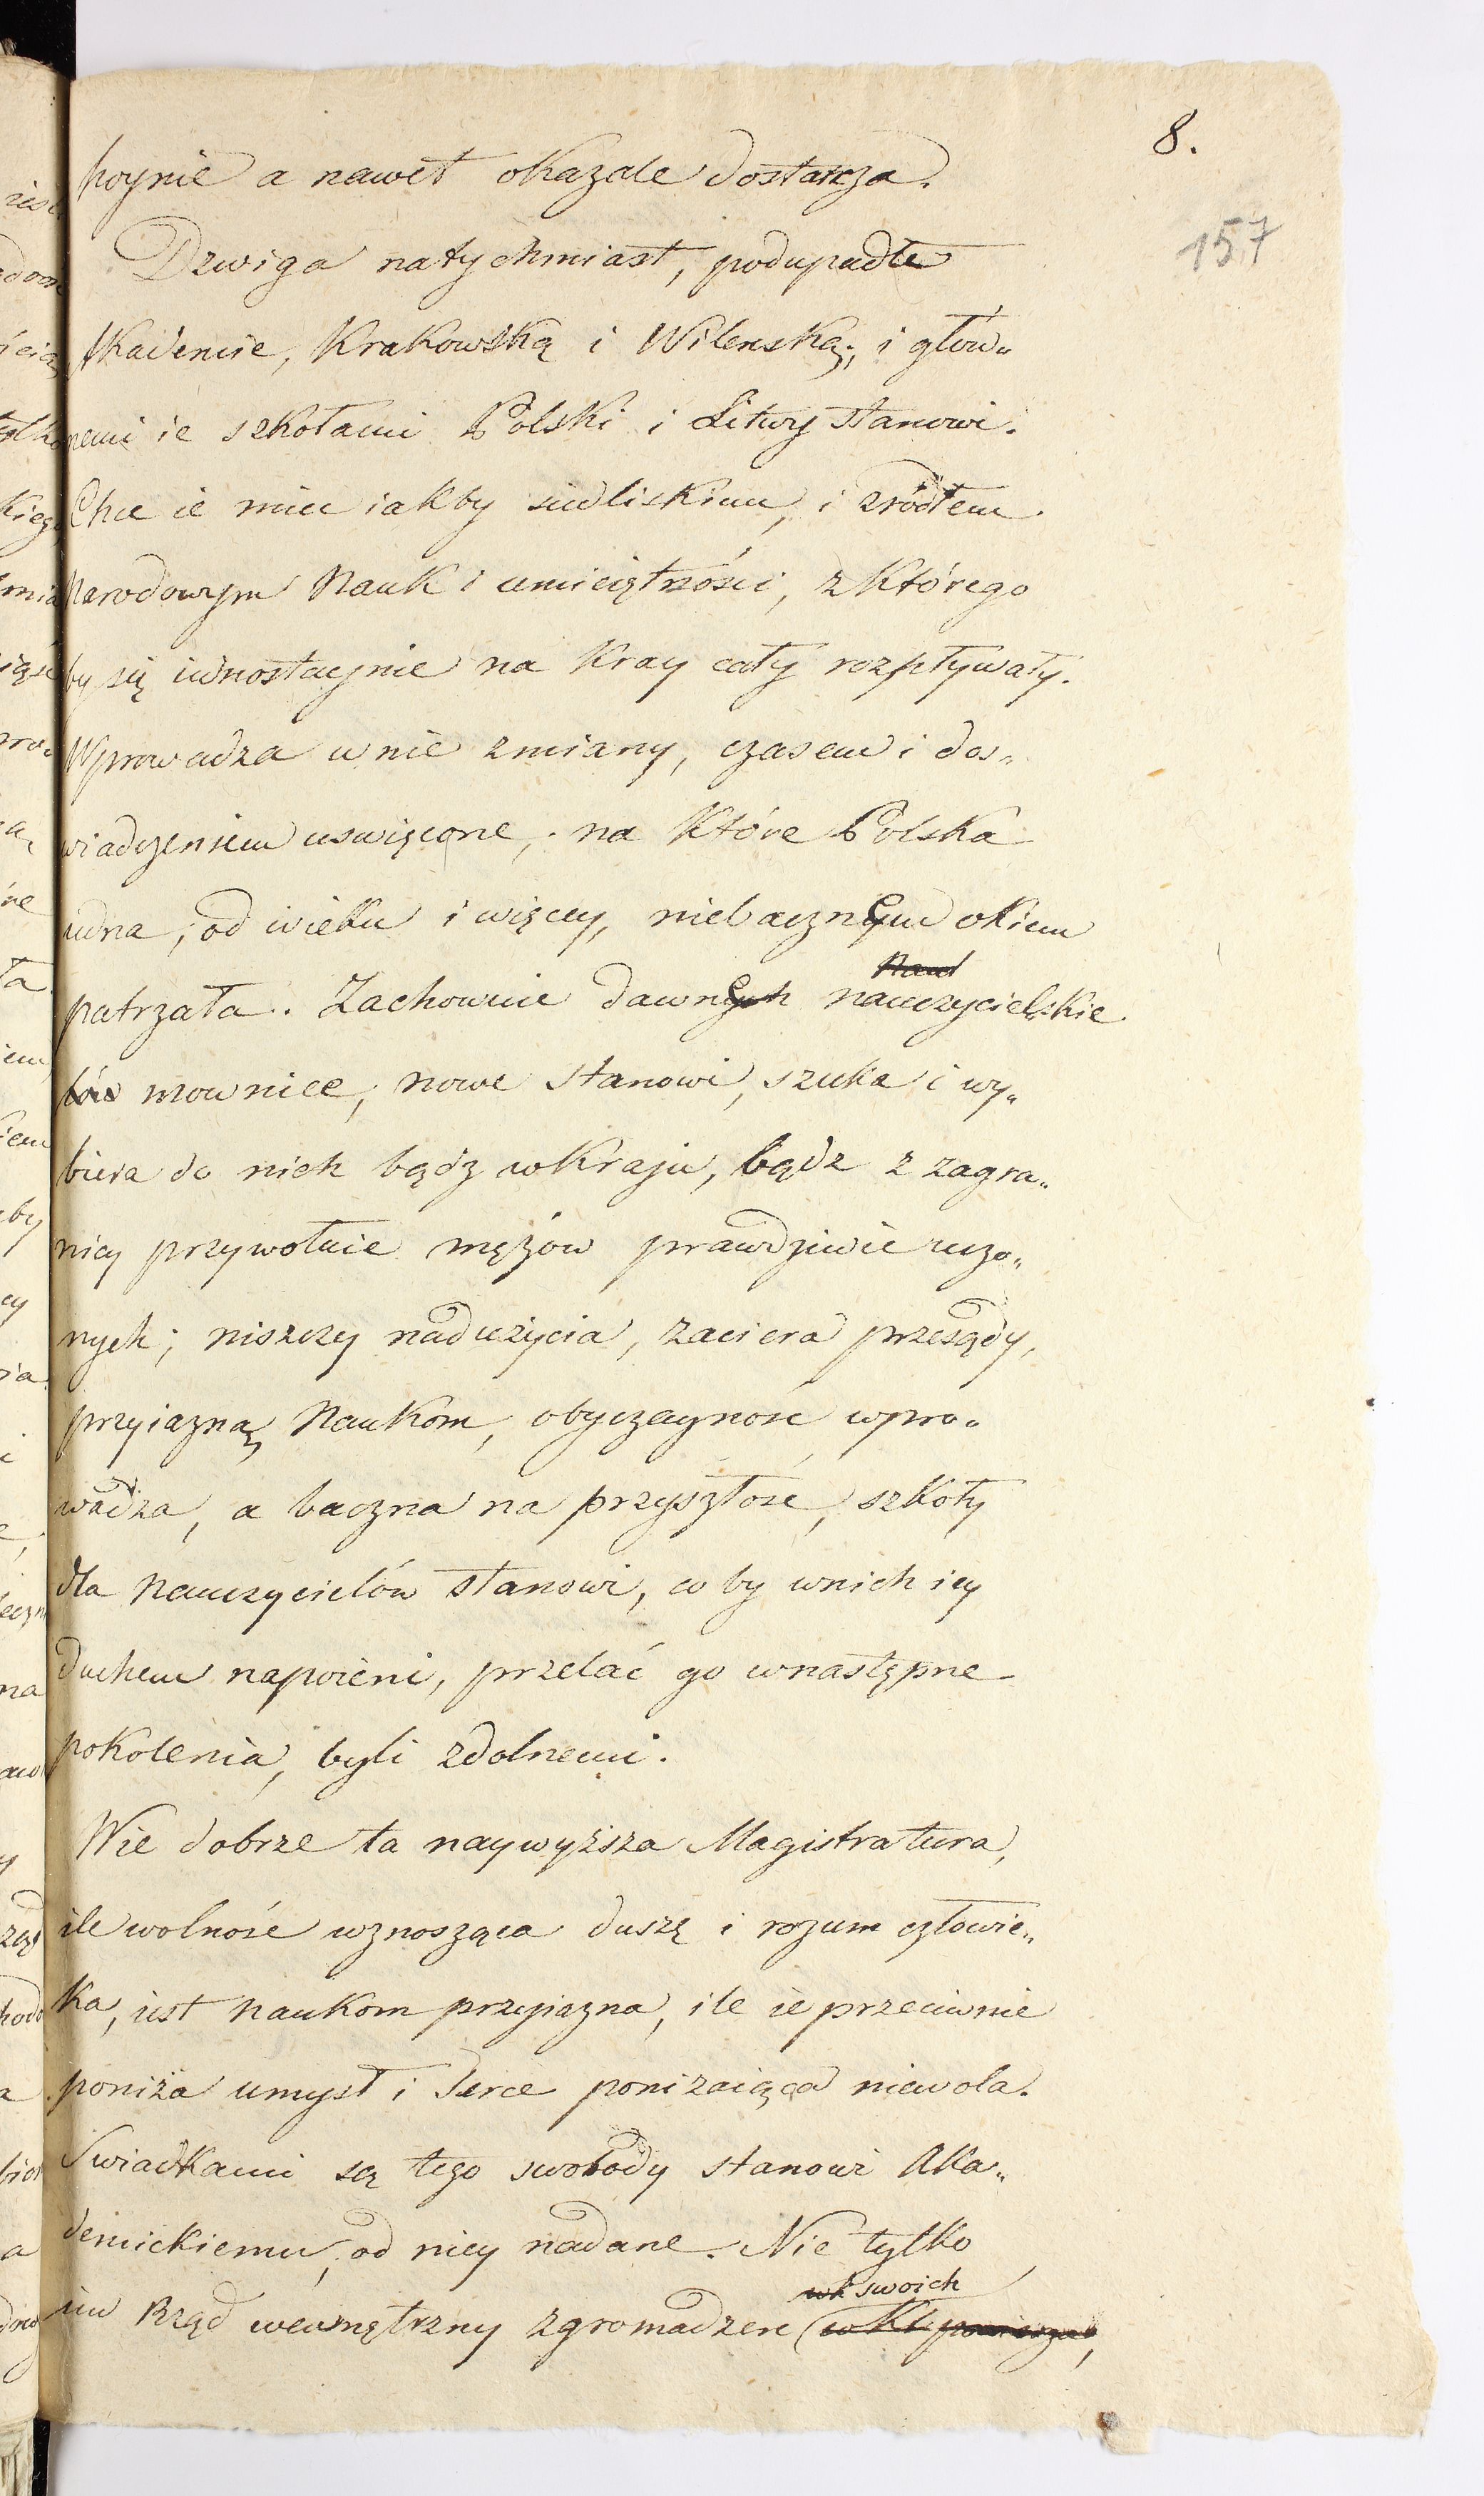 8.
157
hoynie a nawet okazale dostarcza.
Dzwiga natychmiast, podupadłe
Akademie, Krakowską i Wilenską; i głow„
nemi ie szkołami Polski i Litwy stanowi.
Chce ie miec iakby siedliskiem, i zródłem
Narodowym Nauk i umieiętności, z którego
by się iednostaynie na Kray cały rozpływały.
Wprowadza w nie zmiany, czasem i dos„
wiadczeniem uswięcone, na które Polska
iedna, od wieku i więcey, niebacznem okiem
patrzała. Zachowuie dawne nauczycielskie
mownice, nowe stanowi, szuka i wy„
biera do nich bądz w Kraju, bądz z zagra„
nicy przywołuie mężów prawdziwie uczo„
nych; niszczy nadużycia, zaciera przesądy,
przyiazną Naukom, obyczayność wpro„
wadza, a baczna na przyszłość, szkoły
dla Nauczycielów stanowi, co by w nich iey
duchem napoieni, przelać go w następne
pokolenia, byli zdolnemi.
Wie dobrze ta naywyższa Magistratura,
ile wolność wznosząca duszę i rozum człowie„
ka, iest naukom przyiazna, ile ie przeciwnie
poniża umysł i Serce poniżaiąca niewola.
Swiadkami są tego swobody stanowi Aka„
demickiemu, od niey nadane. Nie tylko
im Rząd wewnętrzny zgromadzeń swoich